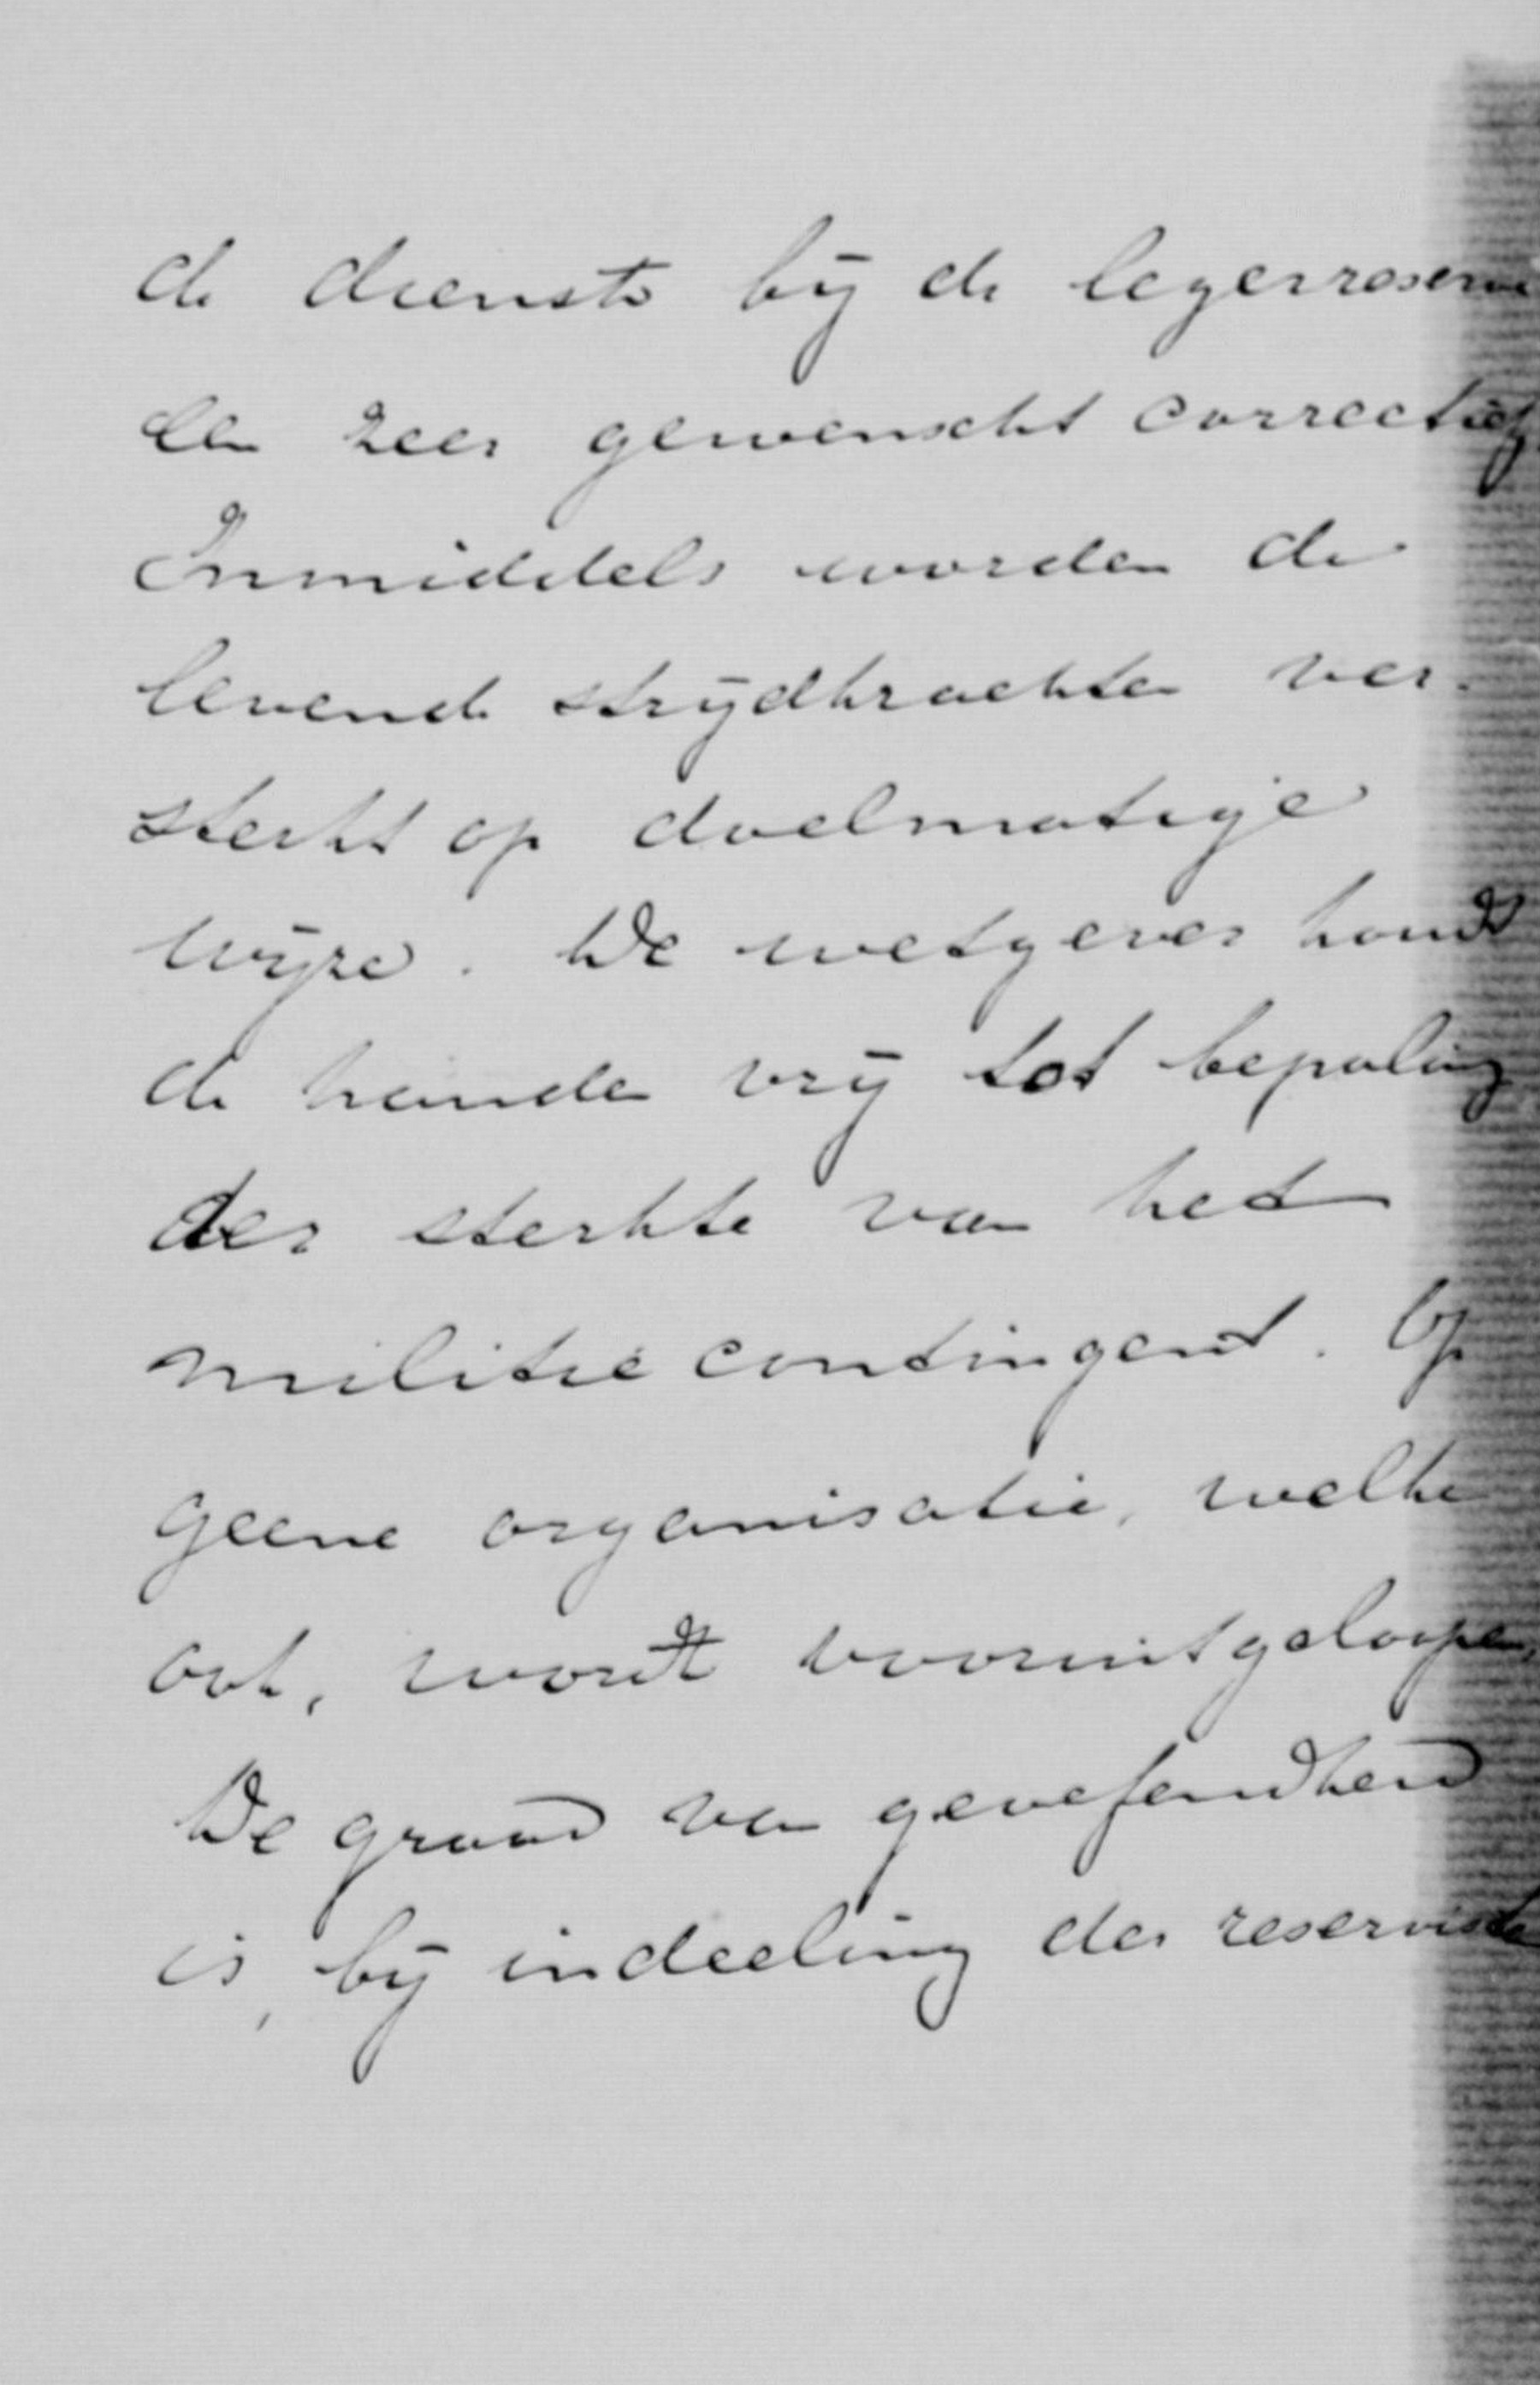 de dienst bij de legerreserve
een zeer gewenscht correctief.
Inmiddels worden de
levende strijdkrachten ver-
sterkt op doelmatige
wijze. De wetgever houdt
de handen vrij tot bepaling
der sterkte van het
militiecontingent. Op
geene organisatie, welke
ook, wordt vooruitgeloopen.
De graad van geoefendheid
is, bij indeeling der reservisten